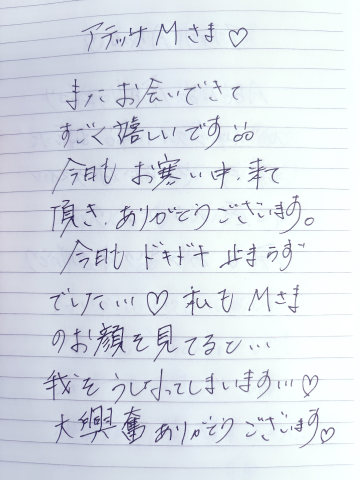 アテッサMさま♡
またお会いできて
すごく嬉しいです
今日もお寒い中、来て
頂き、ありがとうございます。
今日もドキドキ止まらず
でした…♡私もMさま
のお顔を見てると…
我をうしなってしまいます…♡
大興奮ありがとうございます♡